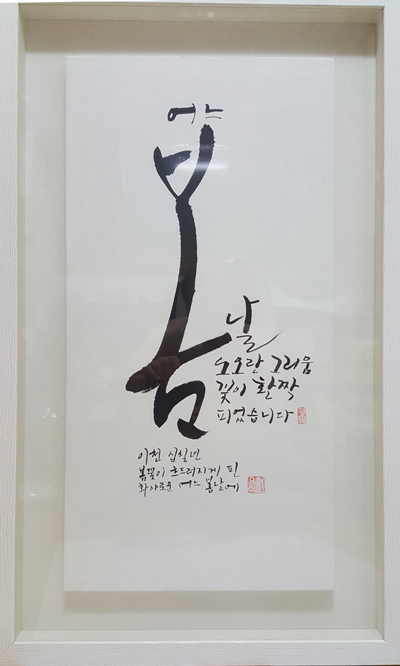 어느
봄
날
노오란 그리움
꽃이 활짝
피었습니다
이천 십칠년
봄꽃이 흐드러지게 핀
화사로운 어느 봄날에